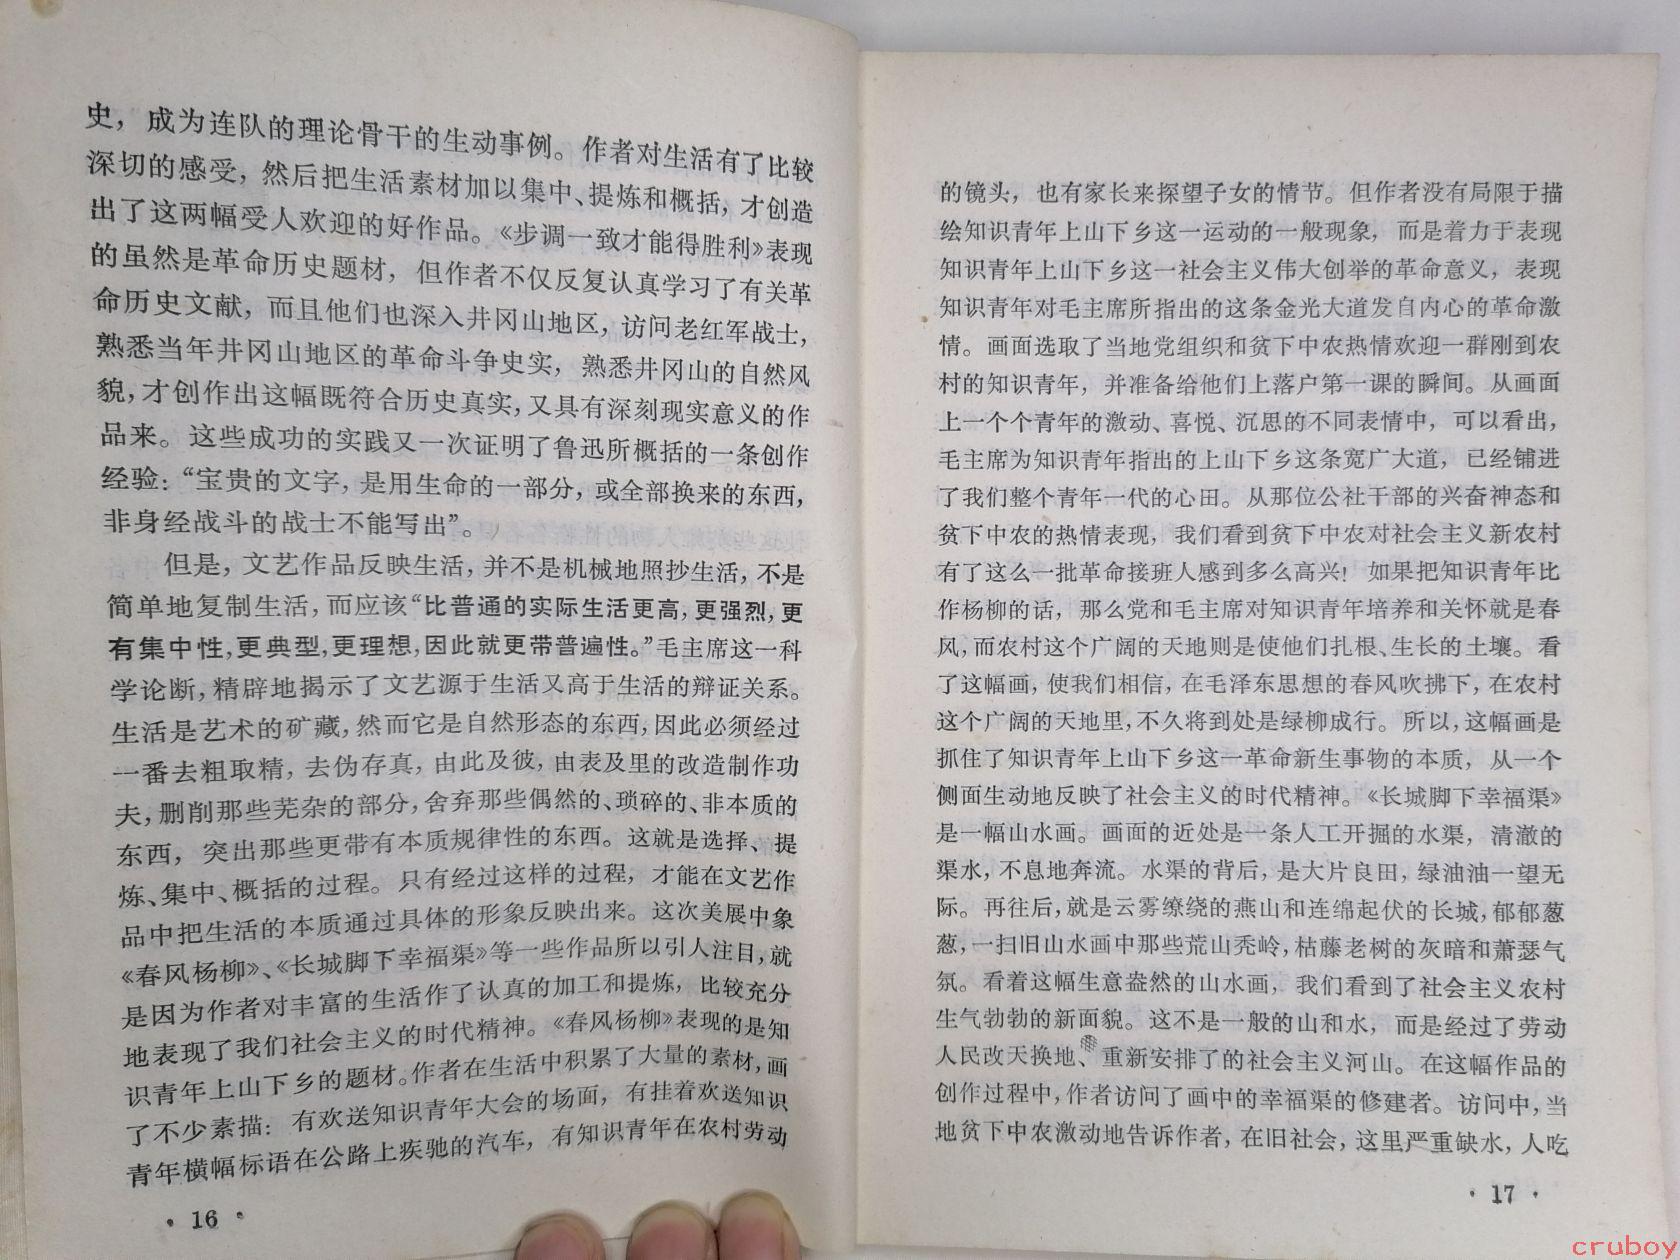 史，成为连队的理论骨干的生动事例。作者对生活有了比较
深切的感受，然后把生活素材加以集中、提炼和概括，才创造
出了这两幅受人欢迎的好作品。《步调一致才能得胜利》表现
的虽然是革命历史题材，但作者不仅反复认真学习了有关革
命历史文献，而且他们也深入井冈山地区，访问老红军战士，
熟悉当年井冈山地区的革命斗争史实，熟悉井冈山的自然风
貌，才创作出这幅既符合历史真实，又具有深刻现实意义的作
品来。这些成功的实践又一次证明了鲁迅所概括的一条创作
经验：“宝贵的文字，是用生命的一部分，或全部换来的东西，
非身经战斗的战士不能写出”。
但是，文艺作品反映生活，并不是机械地照抄生活，不是
简单地复制生活，而应该“比普通的实际生活更高，更强烈，更
有集中性，更典型，更理想，因此就更带普遍性。”毛主席这一科
学论断，精辟地揭示了文艺源于生活又高于生活的辩证关系。
生活是艺术的矿藏，然而它是自然形态的东西，因此必须经过
一番去粗取精，去伪存真，由此及彼，由表及里的改造制作功
夫，删削那些芜杂的部分，舍弃那些偶然的、琐碎的、非本质的
东西，突出那些更带有本质规律性的东西。这就是选择、提
炼、集中、概括的过程。只有经过这样的过程，才能在文艺作
品中把生活的本质通过具体的形象反映出来。这次美展中象
《春风杨柳》、《长城脚下幸福渠》等一些作品所以引人注目，就
是因为作者对丰富的生活作了认真的加工和提炼，比较充分
地表现了我们社会主义的时代精神。《春风杨柳》表现的是知
识青年上山下乡的题材。作者在生活中积累了大量的素材，画
了不少素描：有欢送知识青年大会的场面，有挂着欢送知识
青年横幅标语在公路上疾驰的汽车，有知识青年在农村劳动
· 16 ·
的镜头，也有家长来探望子女的情节。但作者没有局限于描
绘知识青年上山下乡这一运动的一般现象，而是着力于表现
知识青年上山下乡这一社会主义伟大创举的革命意义，表现
知识青年对毛主席所指出的这条金光大道发自内心的革命激
情。画面选取了当地党组织和贫下中农热情欢迎一群刚到农
村的知识青年，并准备给他们上落户第一课的瞬间。从画面
上一个个青年的激动、喜悦、沉思的不同表情中，可以看出，
毛主席为知识青年指出的上山下乡这条宽广大道，已经铺进
了我们整个青年一代的心田。从那位公社干部的兴奋神态和
贫下中农的热情表现，我们看到贫下中农对社会主义新农村
有了这么一批革命接班人感到多么高兴！如果把知识青年比
作杨柳的话，那么党和毛主席对知识青年培养和关怀就是春
风，而农村这个广阔的天地则是使他们扎根、生长的土壤。看
了这幅画，使我们相信，在毛泽东思想的春风吹拂下，在农村
这个广阔的天地里，不久将到处是绿柳成行。所以，这幅画是
抓住了知识青年上山下乡这一革命新生事物的本质，从一个
侧面生动地反映了社会主义的时代精神。《长城脚下幸福渠》
是一幅山水画。画面的近处是一条人工开掘的水渠，清澈的
渠水，不息地奔流。水渠的背后，是大片良田，绿油油一望无
际。再往后，就是云雾缭绕的燕山和连绵起伏的长城，郁郁葱
葱，一扫旧山水画中那些荒山秃岭，枯藤老树的灰暗和萧瑟气
氛。看着这幅生意盎然的山水画，我们看到了社会主义农村
生气勃勃的新面貌。这不是一般的山和水，而是经过了劳动
人民改天换地、重新安排了的社会主义河山。在这幅作品的
创作过程中，作者访问了画中的幸福渠的修建者。访问中，当
地贫下中农激动地告诉作者，在旧社会，这里严重缺水，人吃
· 17 ·
cruboy